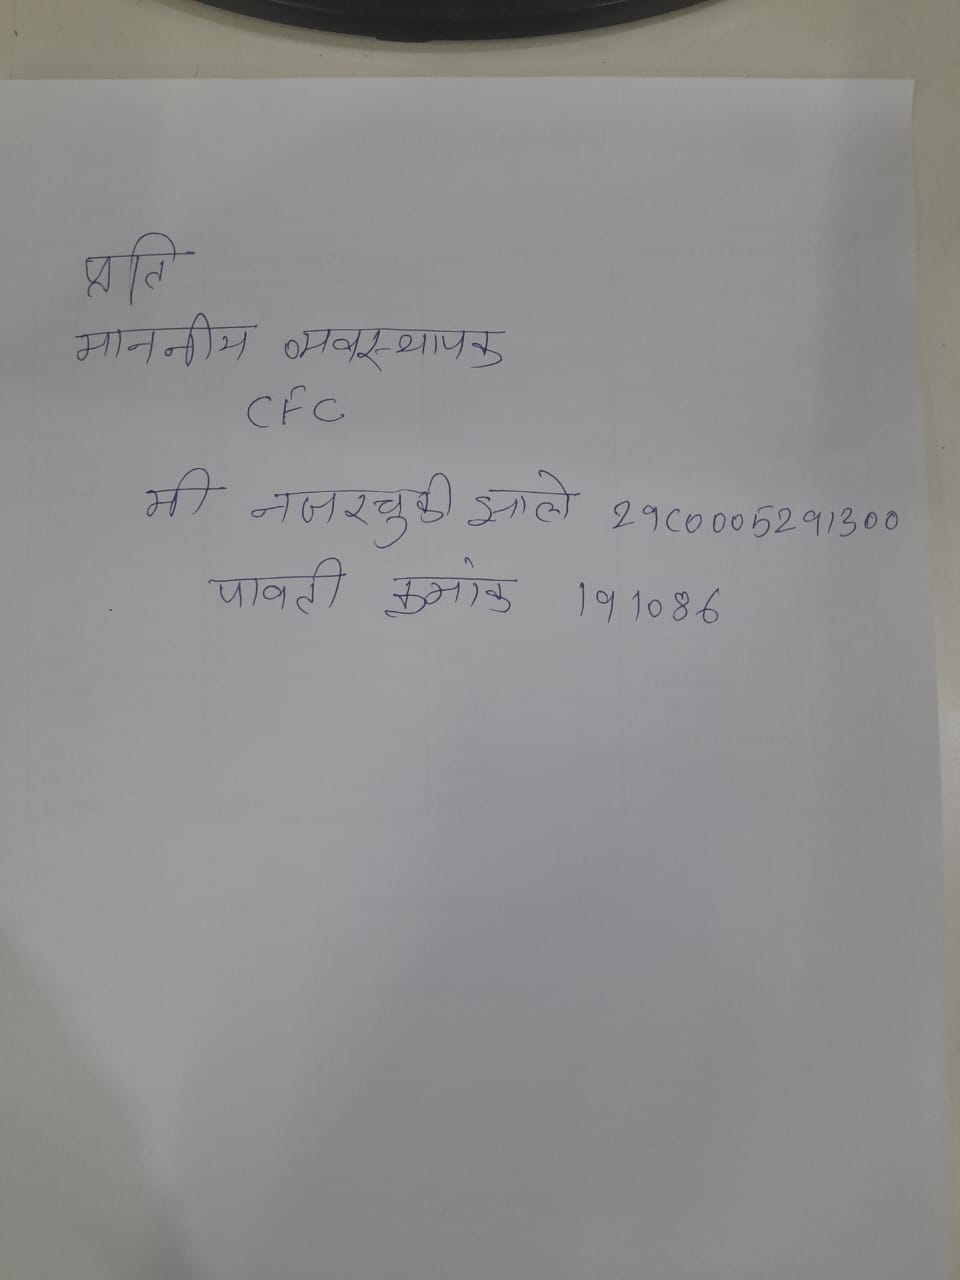 प्रति
माननीय व्यवस्थापक
CFC
मी नजरचुकी झाले 29C0005291300
पावती क्रमांक 191086